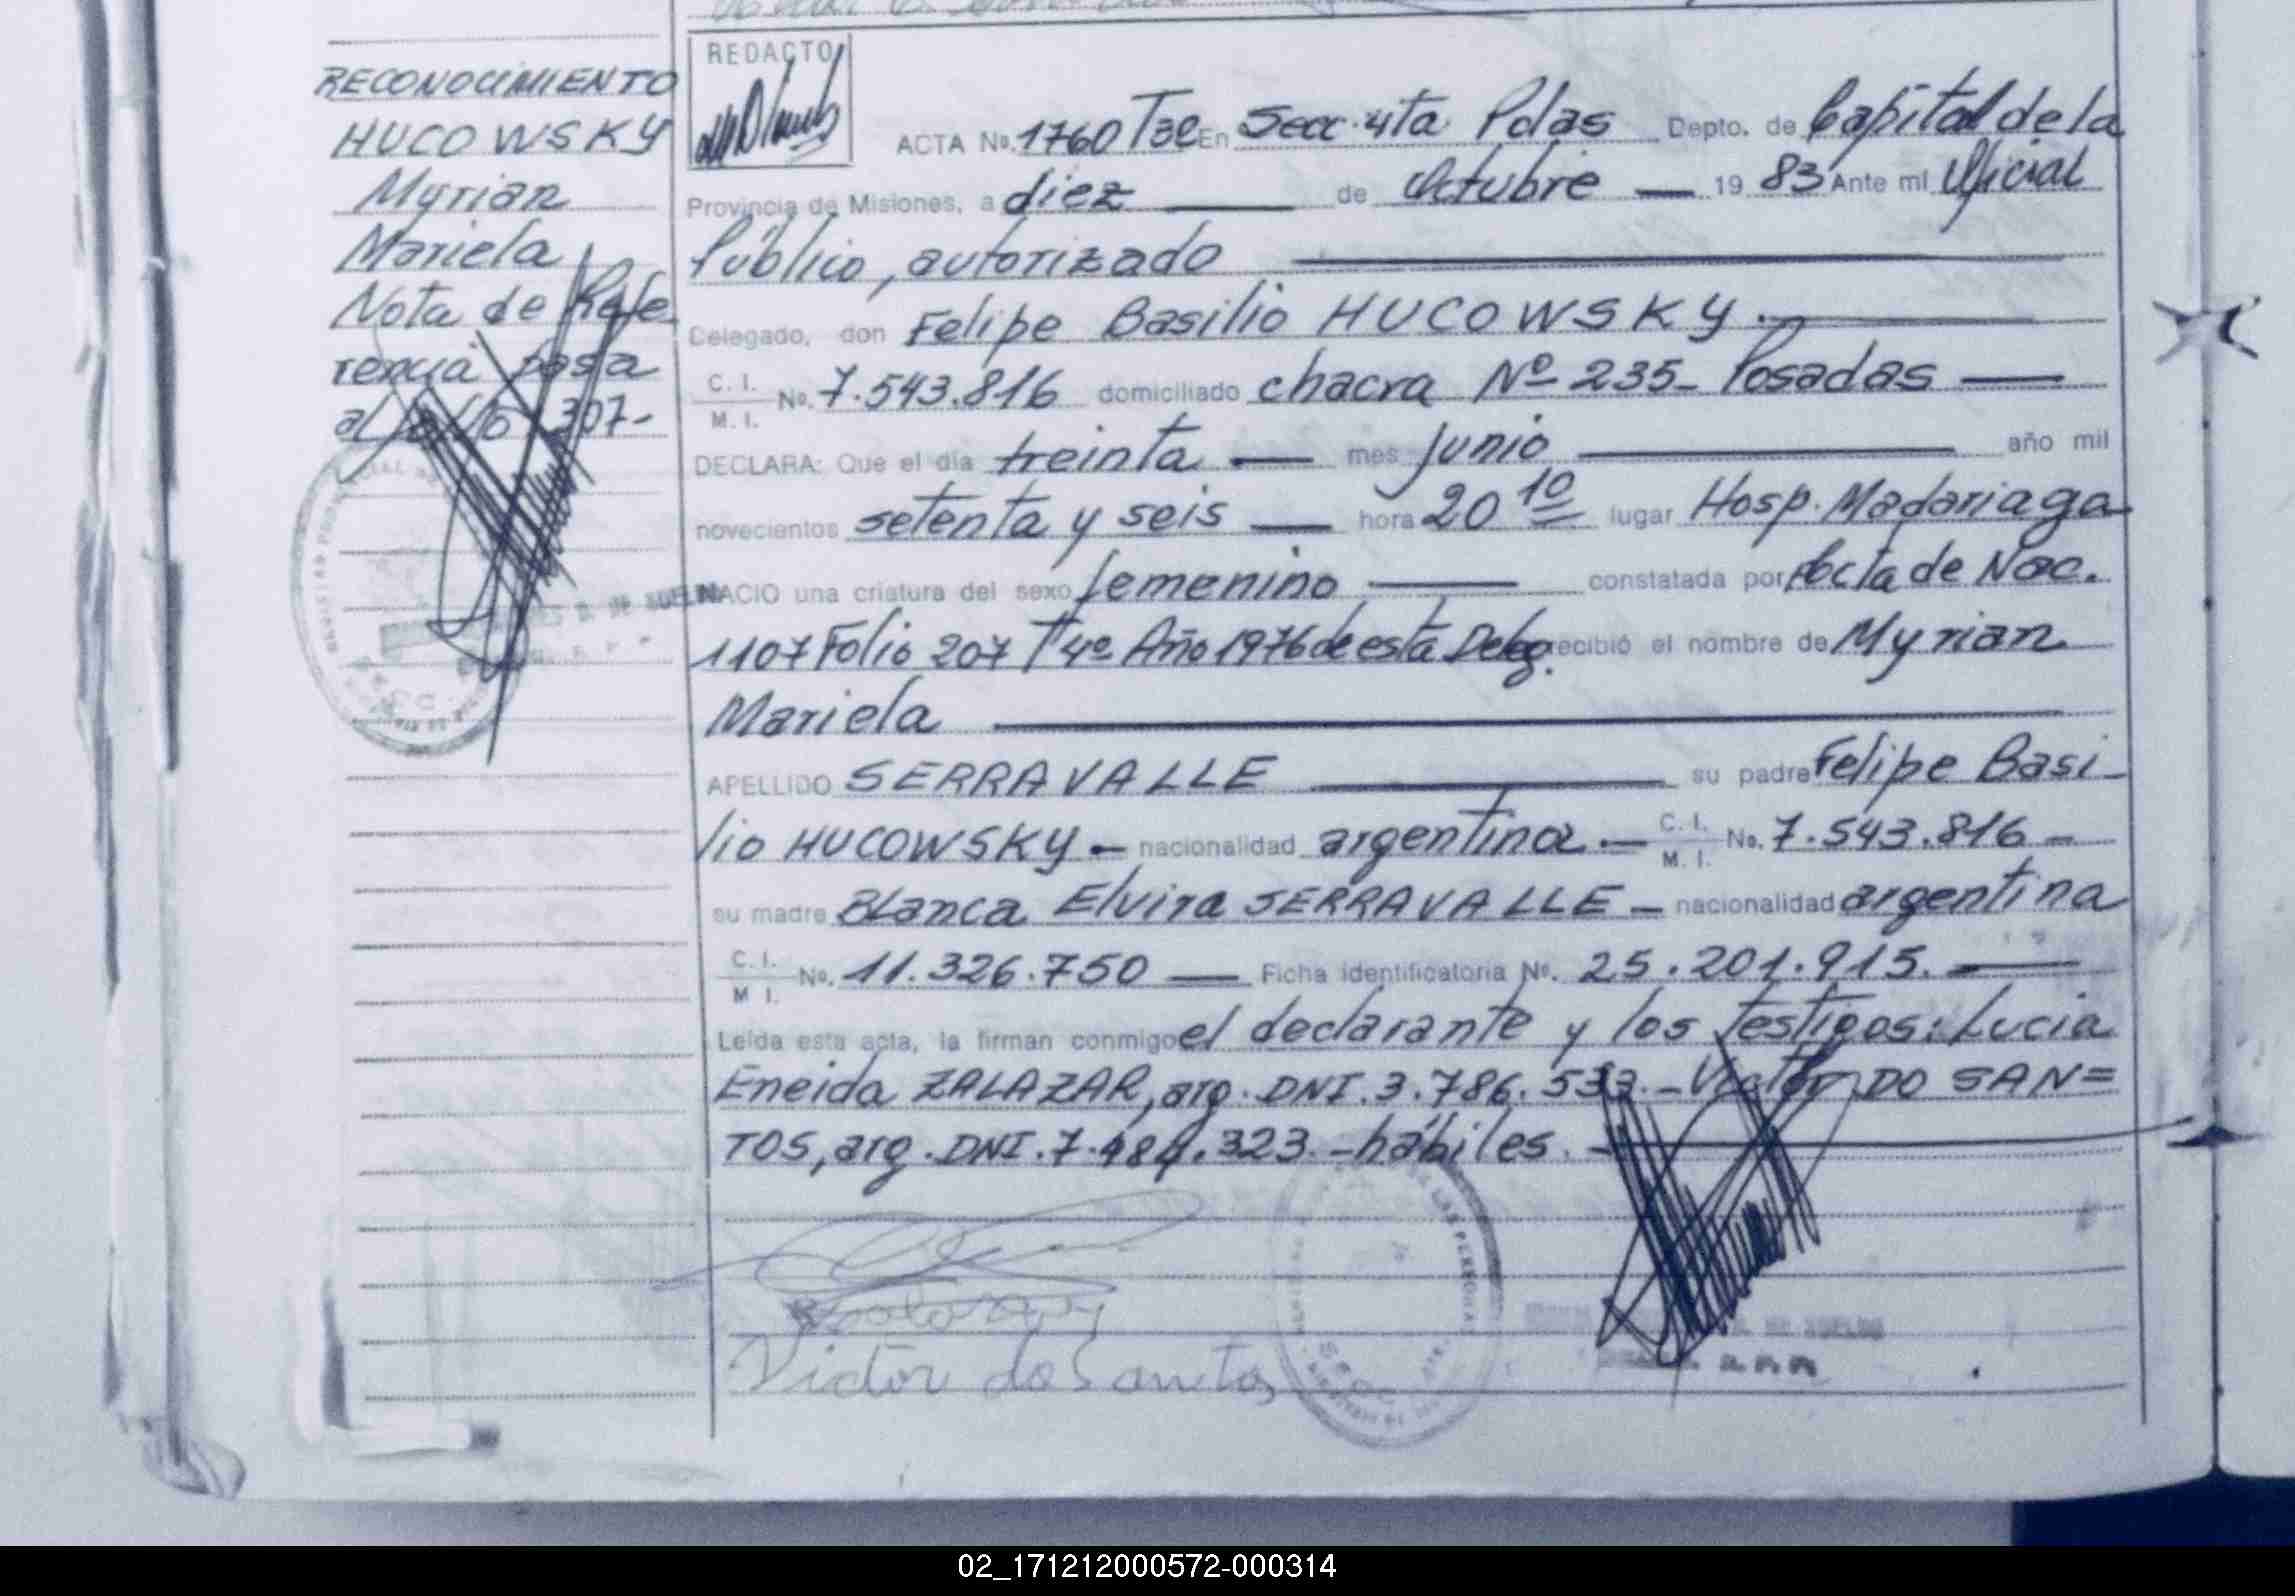 RECONOCIMIENTO
HUCOWSKY
Myrian
Mariela
Nota de Refe
rencia pasa
al 307-
REDACTO
ACTA No. 1760 T3º En Secc. 4ta Pdas Depto. de Capital de la
Provincia de Misiones, a diez de Octubre 19 83 Ante mí Oficial
Público, autorizado
Delegado, don Felipe Basilio HUCOWSKY.
C. I. / M. I. No. 7.543.816 domiciliado chacra Nº 235- Posadas
DECLARA: Que el día treinta mes junio año mil
novecientos setenta y seis hora 20 10 lugar Hosp. Madariaga
NACIO una criatura del sexo femenino constatada por Acta de Nac.
1107 Folio 207 Tº 4º Año 1976 de esta Deleg. recibió el nombre de Myrian
Mariela
APELLIDO SERRAVALLE su padre Felipe Basi-
lio HUCOWSKY - nacionalidad argentina.- C. I. / M. I. No. 7.543.816-
su madre Blanca Elvira SERRAVALLE - nacionalidad argentina
C. I. / M. I. No. 11.326.750 Ficha identificatoria No. 25.201.915.
Leída esta acta, la firman conmigo el declarante y los testigos: Lucia
Eneida ZALAZAR, arg. DNI. 3.786.533.- Victor DO SAN=
TOS, arg. DNI. 7.484.323.- hábiles.-
Victor do Santos
02_171212000572-000314